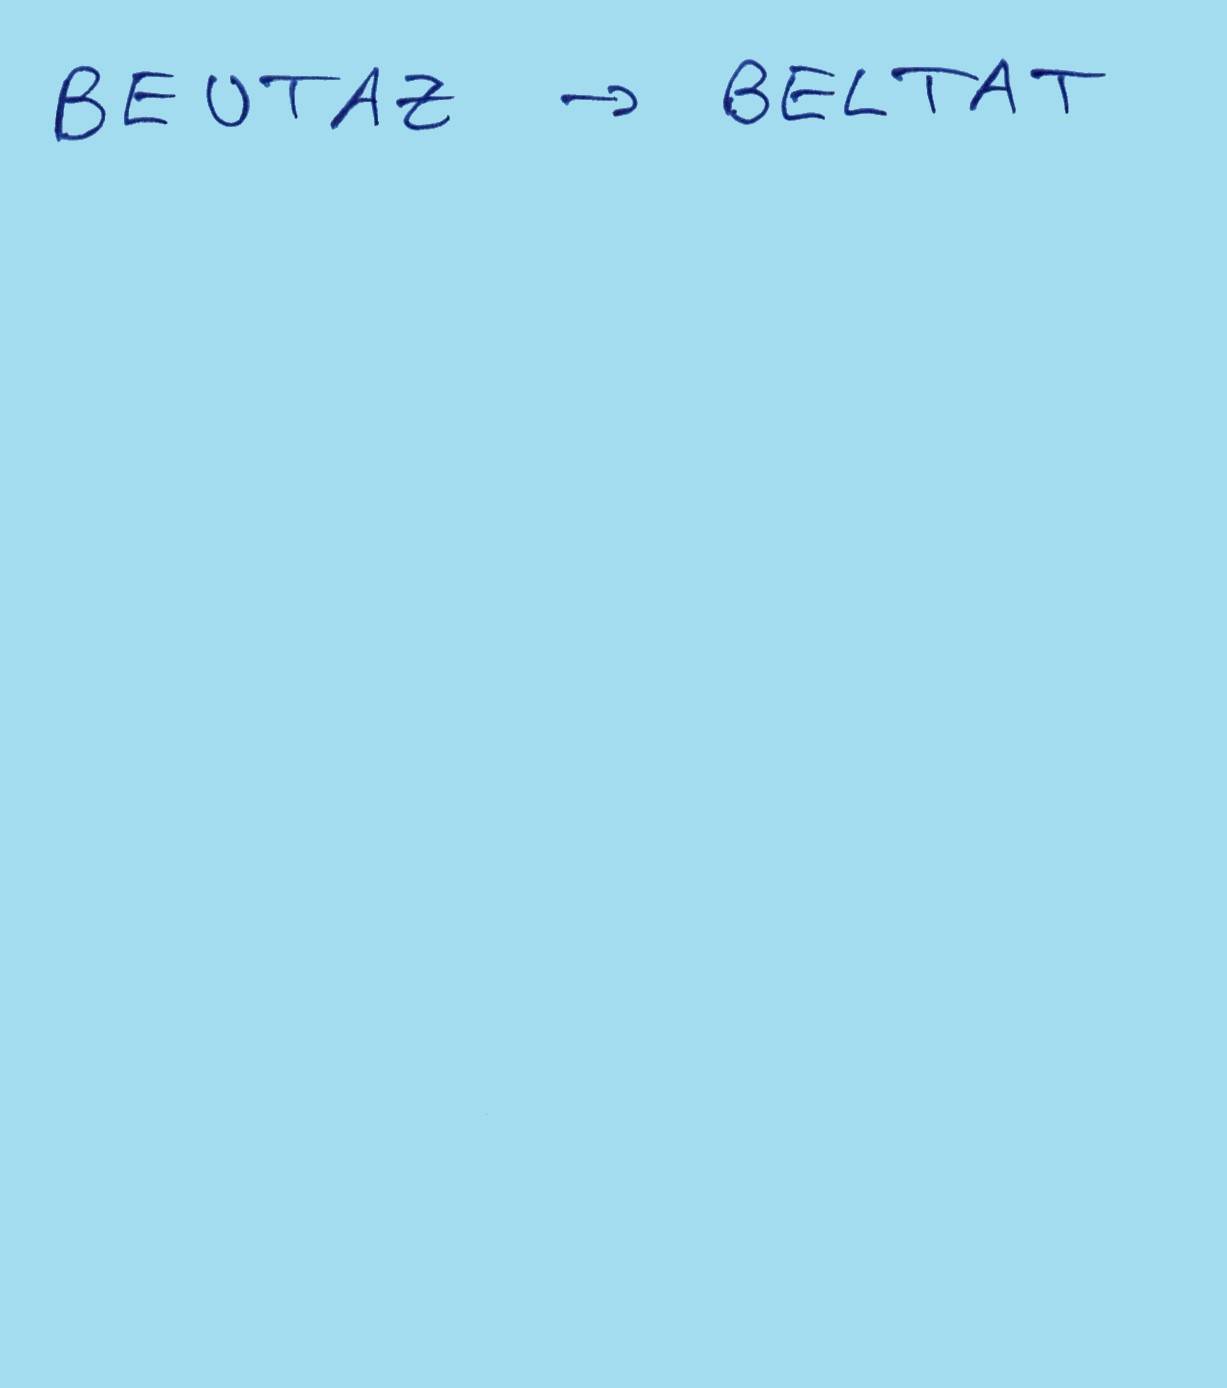 BEUTAZ → BELTAT